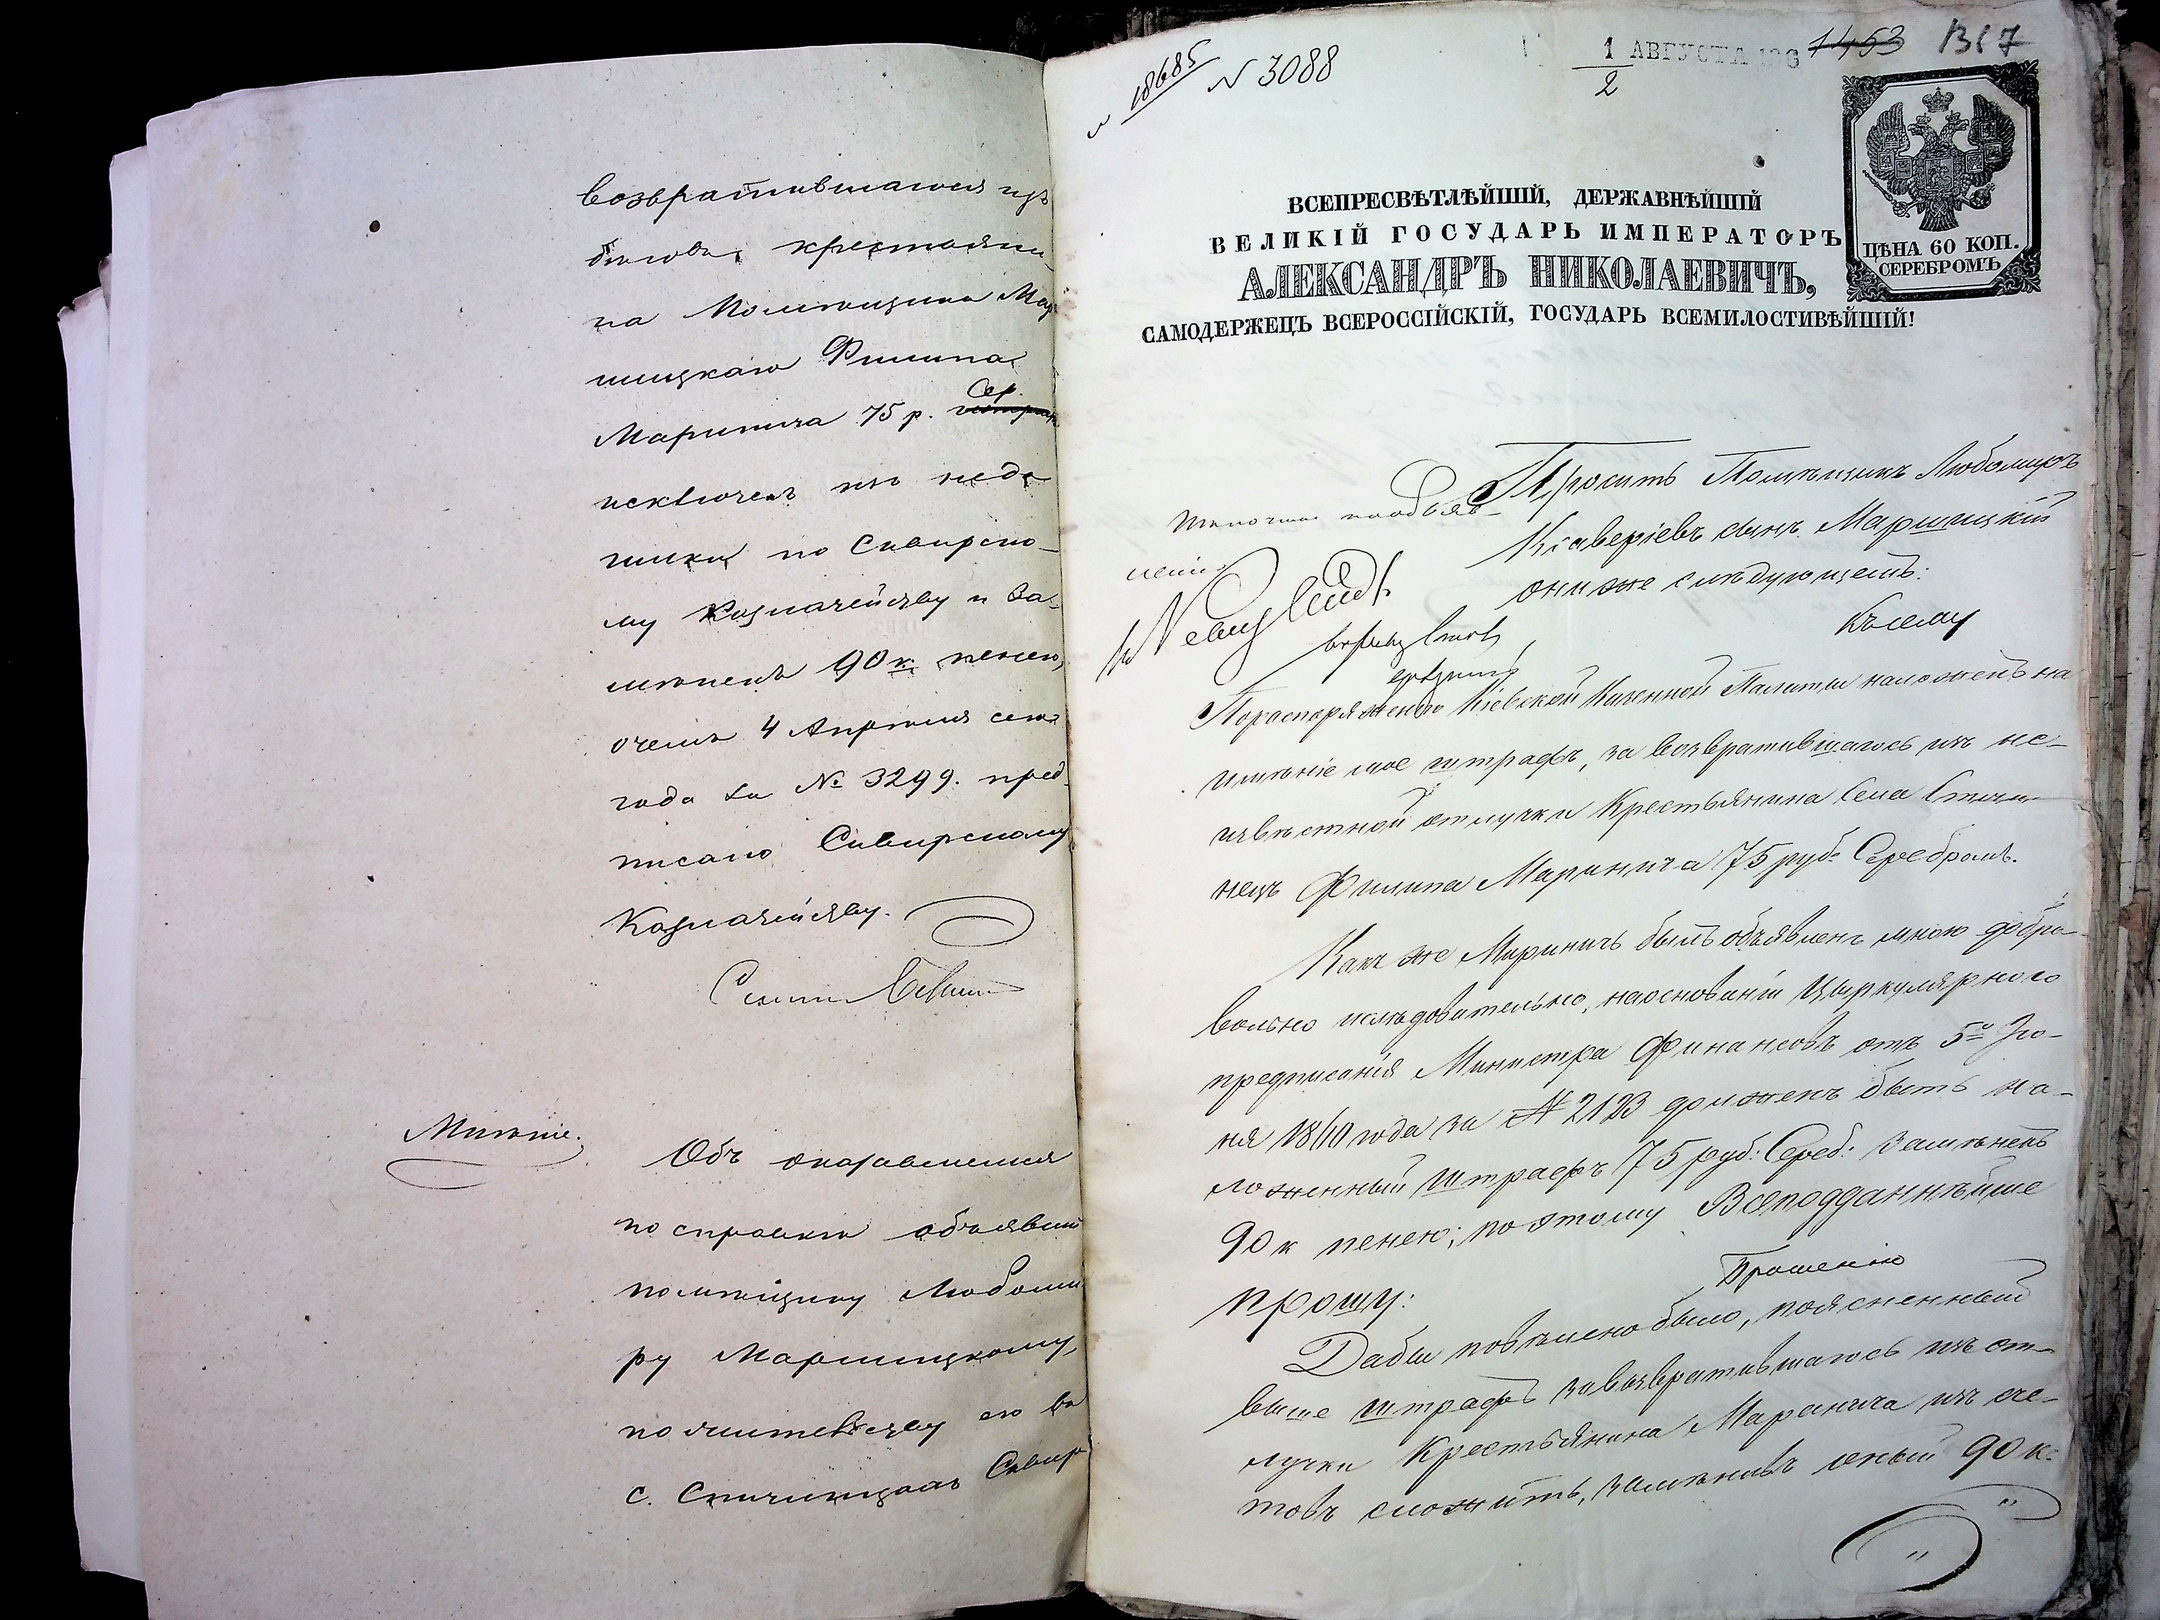 возвратившагося изъ
бѣговъ, крестьяни-
на Помѣщика Мар-
шицкаго Филипа
Сер.
Маринича 75 р.
исключенъ изъ недо
имки по Сквирско-
му Казначейству и за-
мѣненъ 90 к. пенею,
о чемъ 4 Апрѣля сего
года за № 3299. пред
писано Сквирскому
Казначейству.
Мнѣніе.
Объ оказавшемся
по справкѣ объявить
помѣщику Любоми
ру Маршицкому,
по жительству его въ
с. Стичинцахъ Сквир
18685
N 3088
1 АВГУСТА 186
2
1453 1317
ЦѢНА 60 КОП.
СЕРЕБРОМЪ
ВСЕПРЕСВѢТЛѢЙШІЙ, ДЕРЖАВНѢЙШІЙ
ВЕЛИКІЙ ГОСУДАРЬ ИМПЕРАТОРЪ
АЛЕКСАНДРЪ НИКОЛАЕВИЧЪ,
САМОДЕРЖЕЦЪ ВСЕРОССІЙСКІЙ, ГОСУДАРЬ ВСЕМИЛОСТИВѢЙШІЙ!
Проситъ Помѣщикъ Любомиръ
Ксаверіевъ сынъ Маршицкій
о ниже слѣдующемъ:
Къ сему
По распоряженію Кіевской Казенной Палаты наложенъ на
имѣніе мое штрафъ, за возвратившагось изъ не-
извѣстной отлучки Крестьянина Села
нецъ Филипа Маринича 75 руб. Серебромъ.
Какъ же Мариничъ былъ объявленъ мною добро-
вольно и слѣдовательно, на основаніи Циркулярного
предписанія Министра Финансовъ отъ 5го Ію-
ня 1840 года за № 2123 долженъ быть на-
ложенный штрафъ 75 руб: Сереб: замѣненъ
90 к пенею; по этому Всеподданнѣйше
прошу:
Прошенію
Дабы повѣлено было, поясненный
выше штрафъ за возвратившагось изъ от-
лучки Крестьянина Маринича изъ сче-
товъ сложить, замѣнивъ оный 90 к: